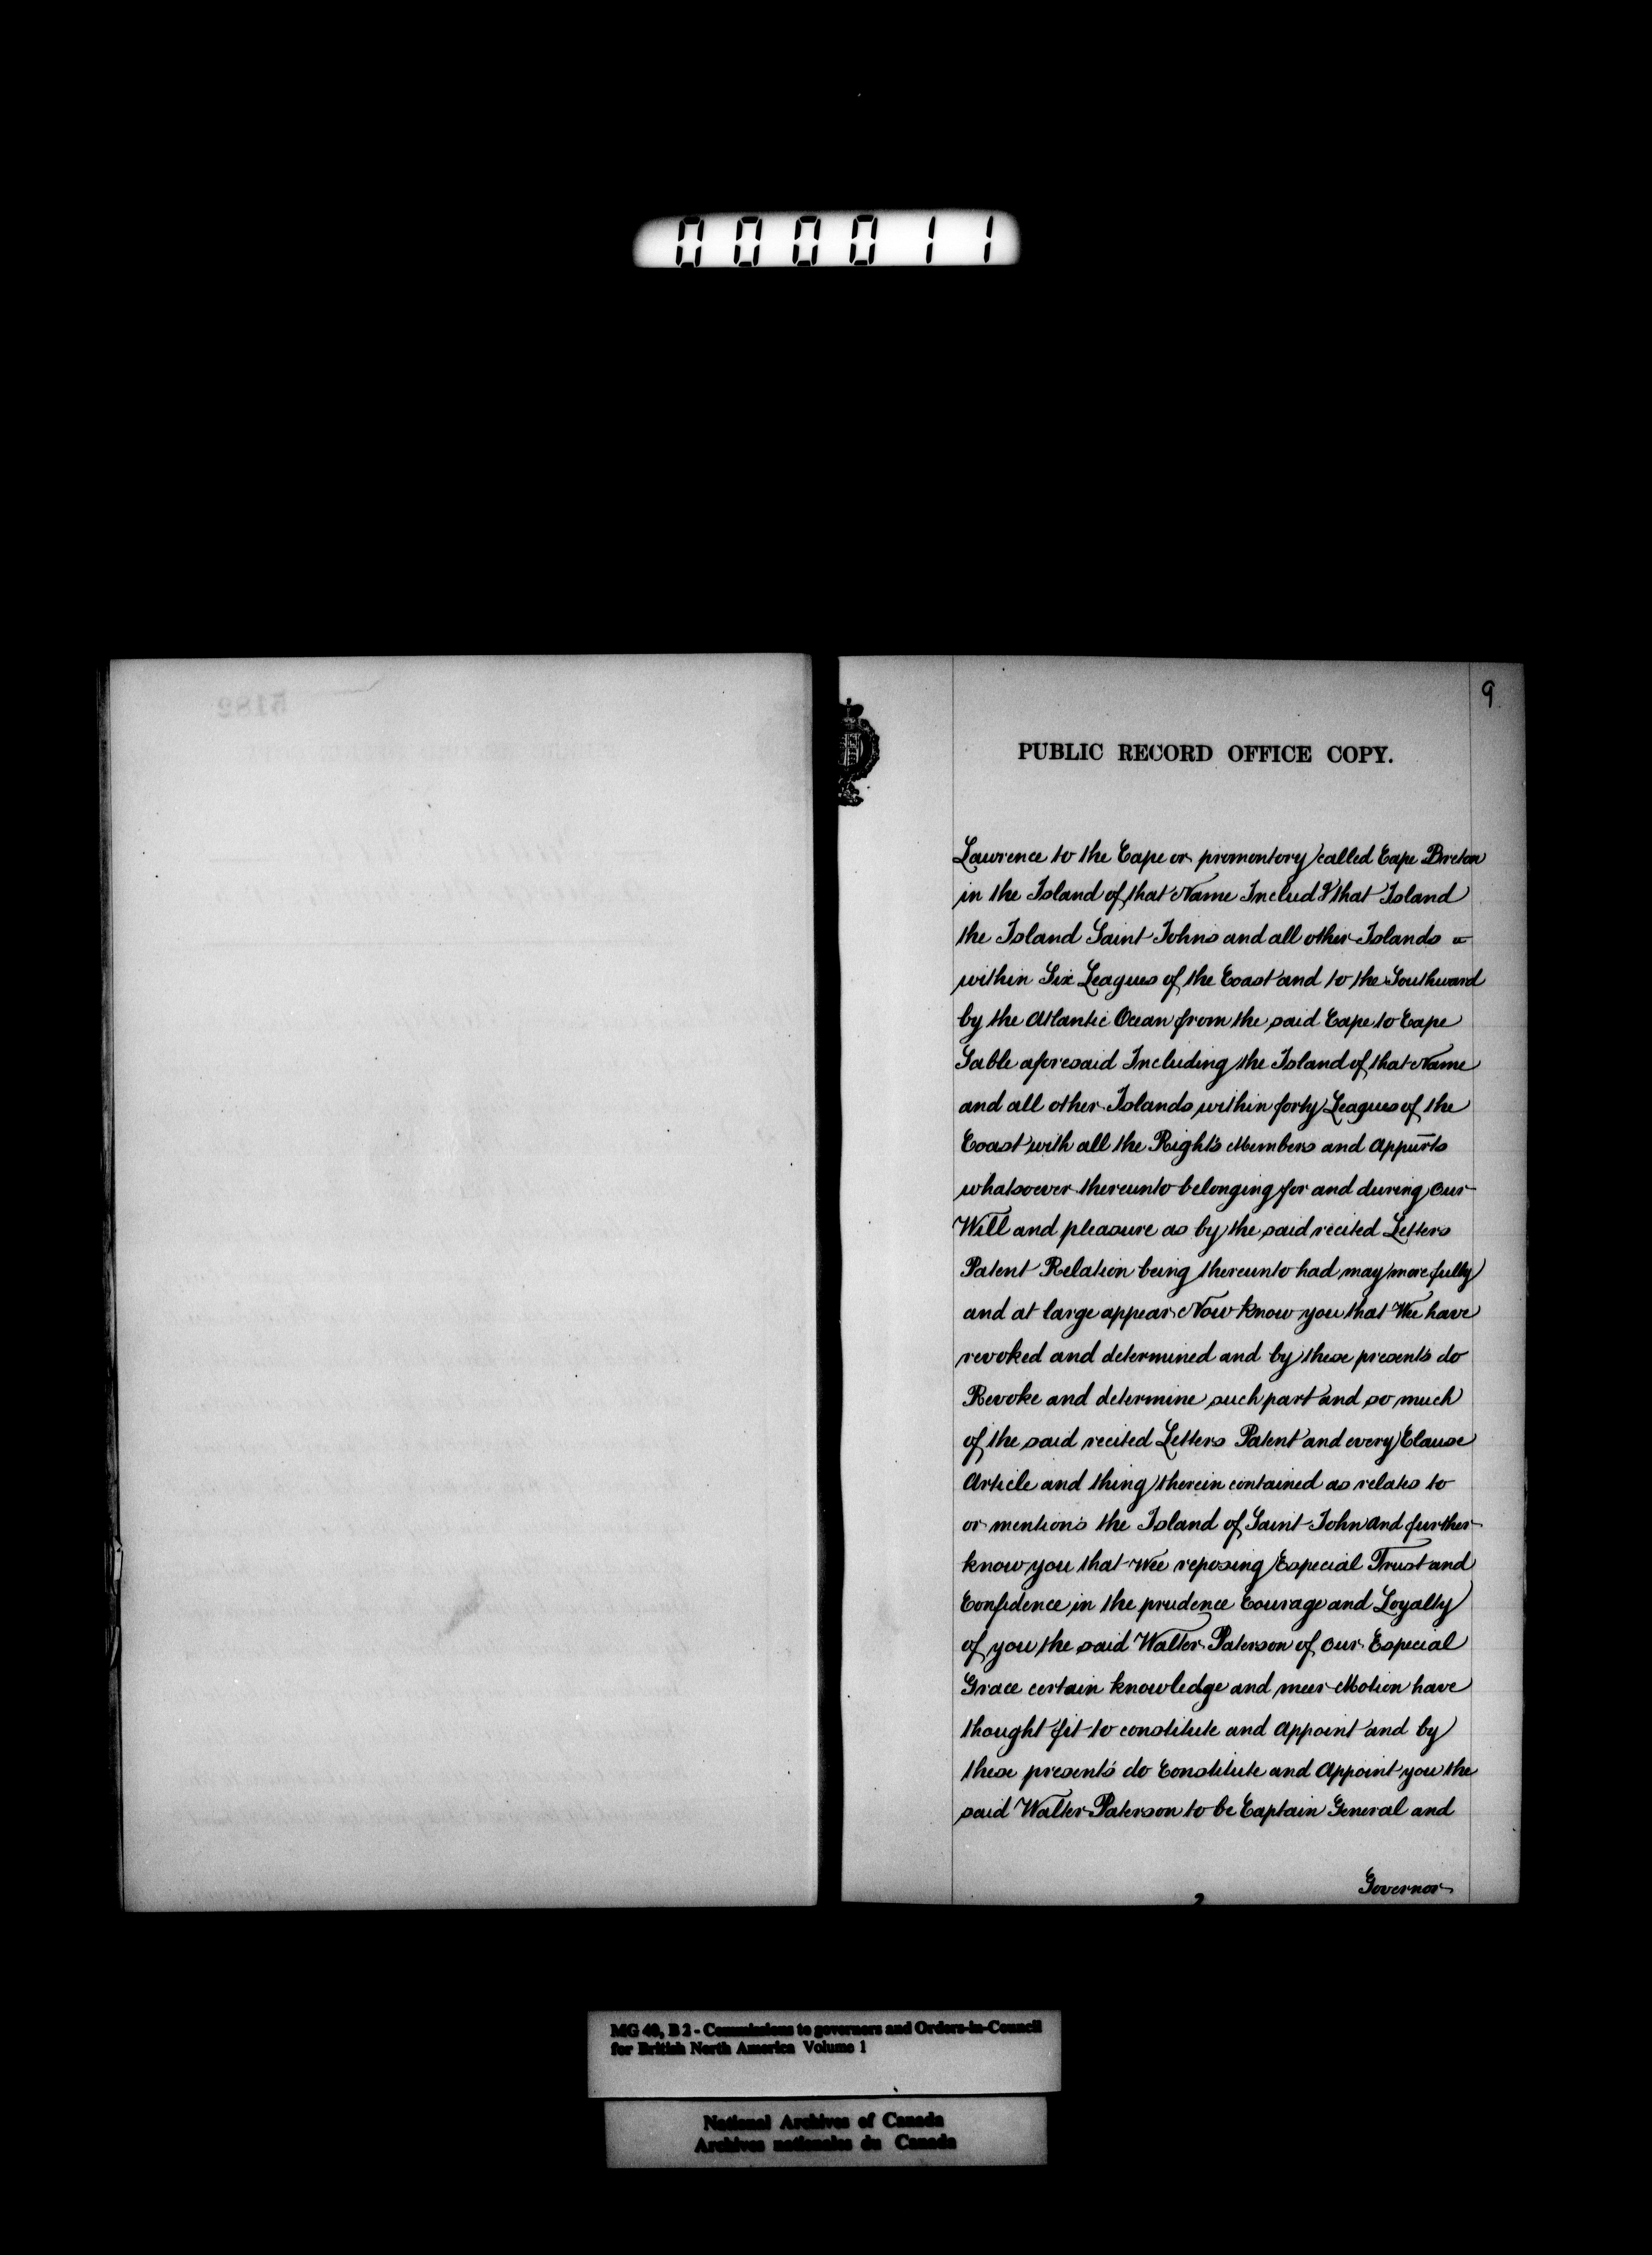 000011
9
PUBLIC RECORD OFFICE COPY.
Lawrence to the Cape or promontory called Cape Breton
in the Island of that Name Includ&#x27;g that Island
the Island Saint Johns and all other Islands
within Six Leagues of the Coast and to the Southward
by the Atlantic Ocean from the said Cape to Cape
Sable aforesaid Including the Island of that Name
and all other Islands within forty Leagues of the
Coast with all the Rights Members and Appurts
whatsoever thereunto belonging for and during Our
Will and pleasure as by the said recited Letters
Patent Relation being thereunto had may more fully
and at large appear Now know you that Wee have
revoked and determined and by these presents do
Revoke and determine such part and so much
of the said recited Letters Patent and every Clause
Article and thing therein contained as relates to
or mentions the Island of Saint John And further
know you that Wee reposing Especial Trust and
Confidence in the prudence Courage and Loyalty
of you the said Walter Paterson of Our Especial
Grace certain knowledge and meer Motion have
thought fit to constitute and Appoint and by
these presents do Constitute and Appoint you the
said Walter Paterson to be Captain General and
Governor
2
MG 40, B 2 - Commissions to governors and Orders-in-Council
for British North America Volume 1
National Archives of Canada
Archives nationales du Canada